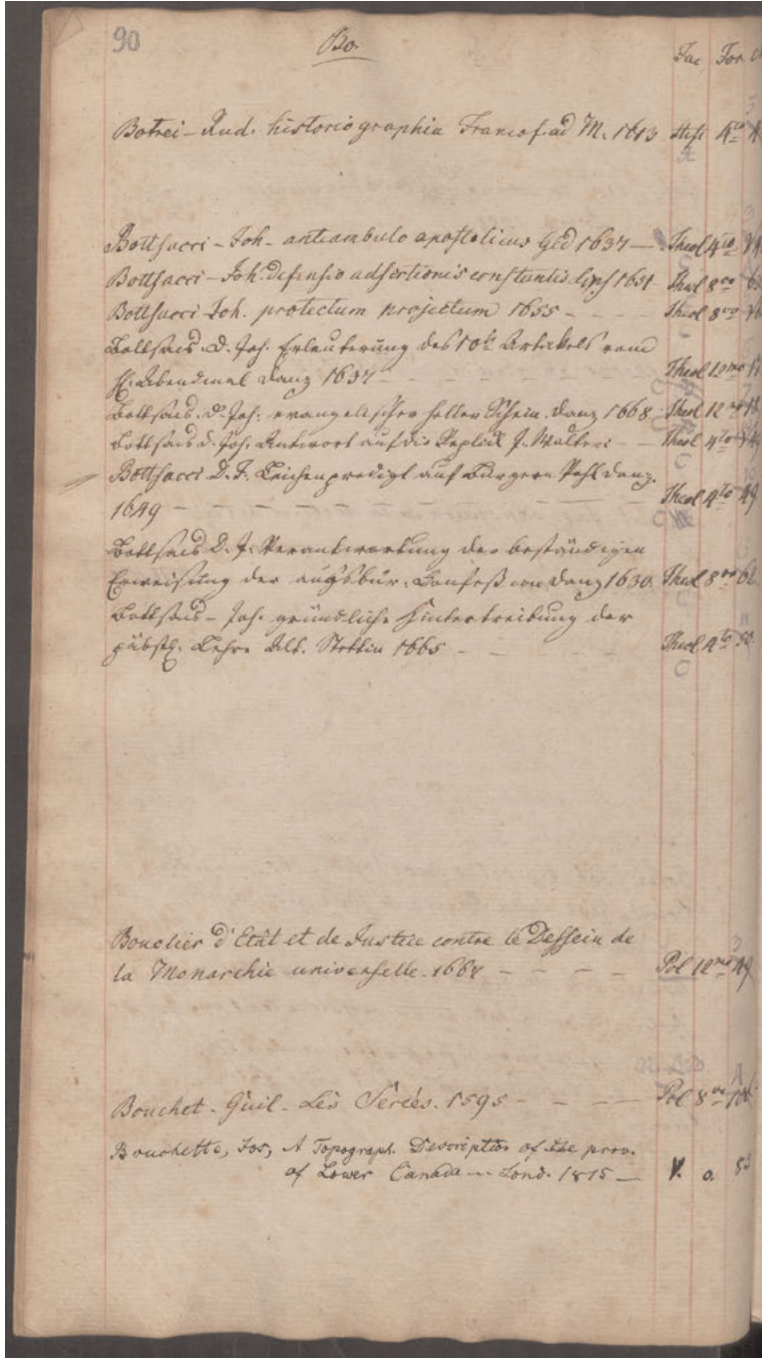 90 Bo. Fac For
Botrei - Rud. historiographia Francof. ad M. 1613 Hist 4to
Bottsacci - Joh - antiambulo apostolicus Ged 1637 — Theol 4to
Bottsacci - Joh. defensio adsertionis constantis Lips 1651 Theol 8vo
Bottsacci Joh. protectum projectum 1655 - - - Theol 8vo
Bottsaks D. Joh. Erleuterung des 10t Artickels vom
H. Abendmal Danz 1637 - - - - - Theol 12mo
Bottsaks D. Joh. evangelischer heller Schein. Danz 1668 - Theol 12mo
Bottsaks d. Joh. Antwort auf die Replick J. Walteri - - Theol 4to
Bottsacci D. J. Leichenpredigt auf Burgern Pahl Danz.
1649 - - - - - - - - Theol 4to 49
Bottsaks D. J. Verantwortung der beständigen
Erweisung der augsbur. Confession Danz 1630 Theol 8vo
Bottsaks - Joh. gründliche Hintertreibung der
päbstl. Lehre Alt. Stettin 1665 - - - Theol 4to
Bouclier d'Etât et de Justice contre le Dessein de
la Monarchie universelle. 1667 - - - - Pol 12mo 49
Bouchet - Guil - Les Serées. 1595 - - - — Pol 8vo
Bouchette, Jos, A Topograph. Description of the prov.
of Lower Canada — Lond. 1815 — V. o. 83